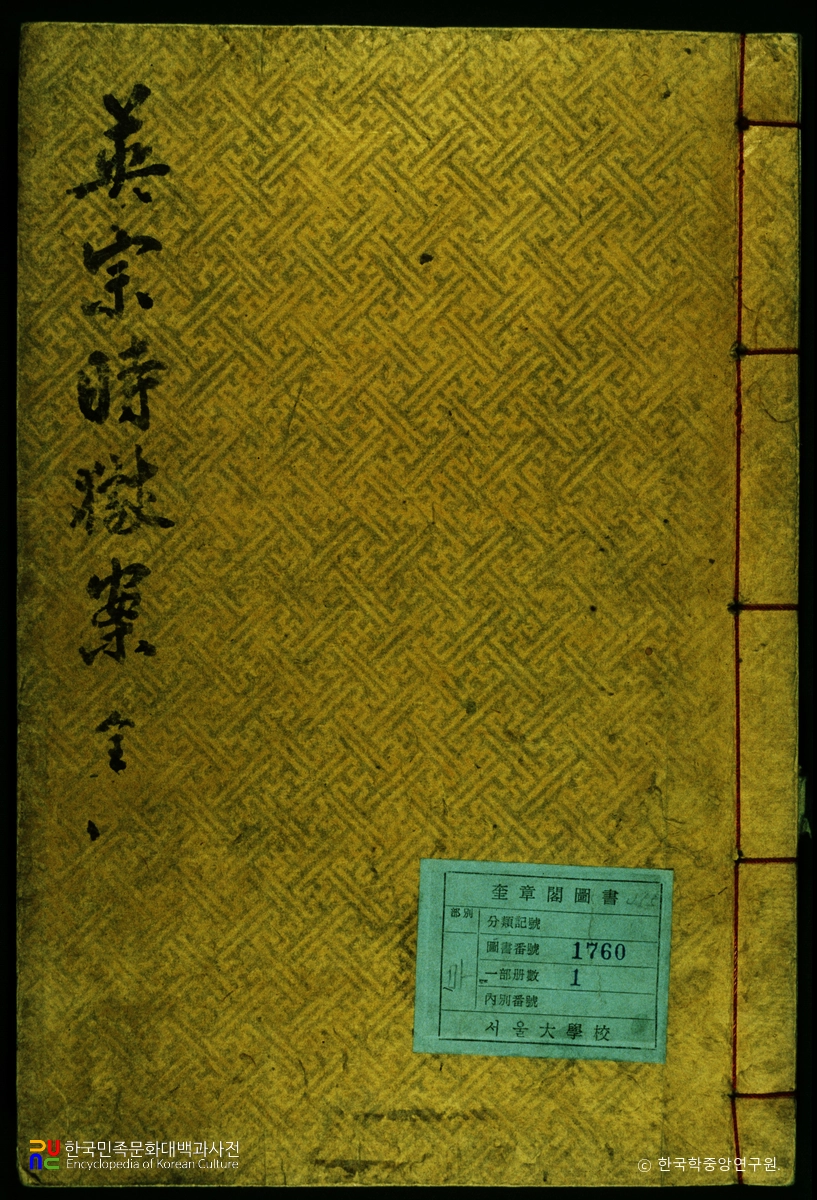 英宗時獄案 全
奎章閣圖書
部別
分類記號
圖書番號 1760
一部册数 1
內別番號
서울大學校
한국민족문화대백과사전
Encyclopedia of Korean Culture
© 한국학중앙연구원